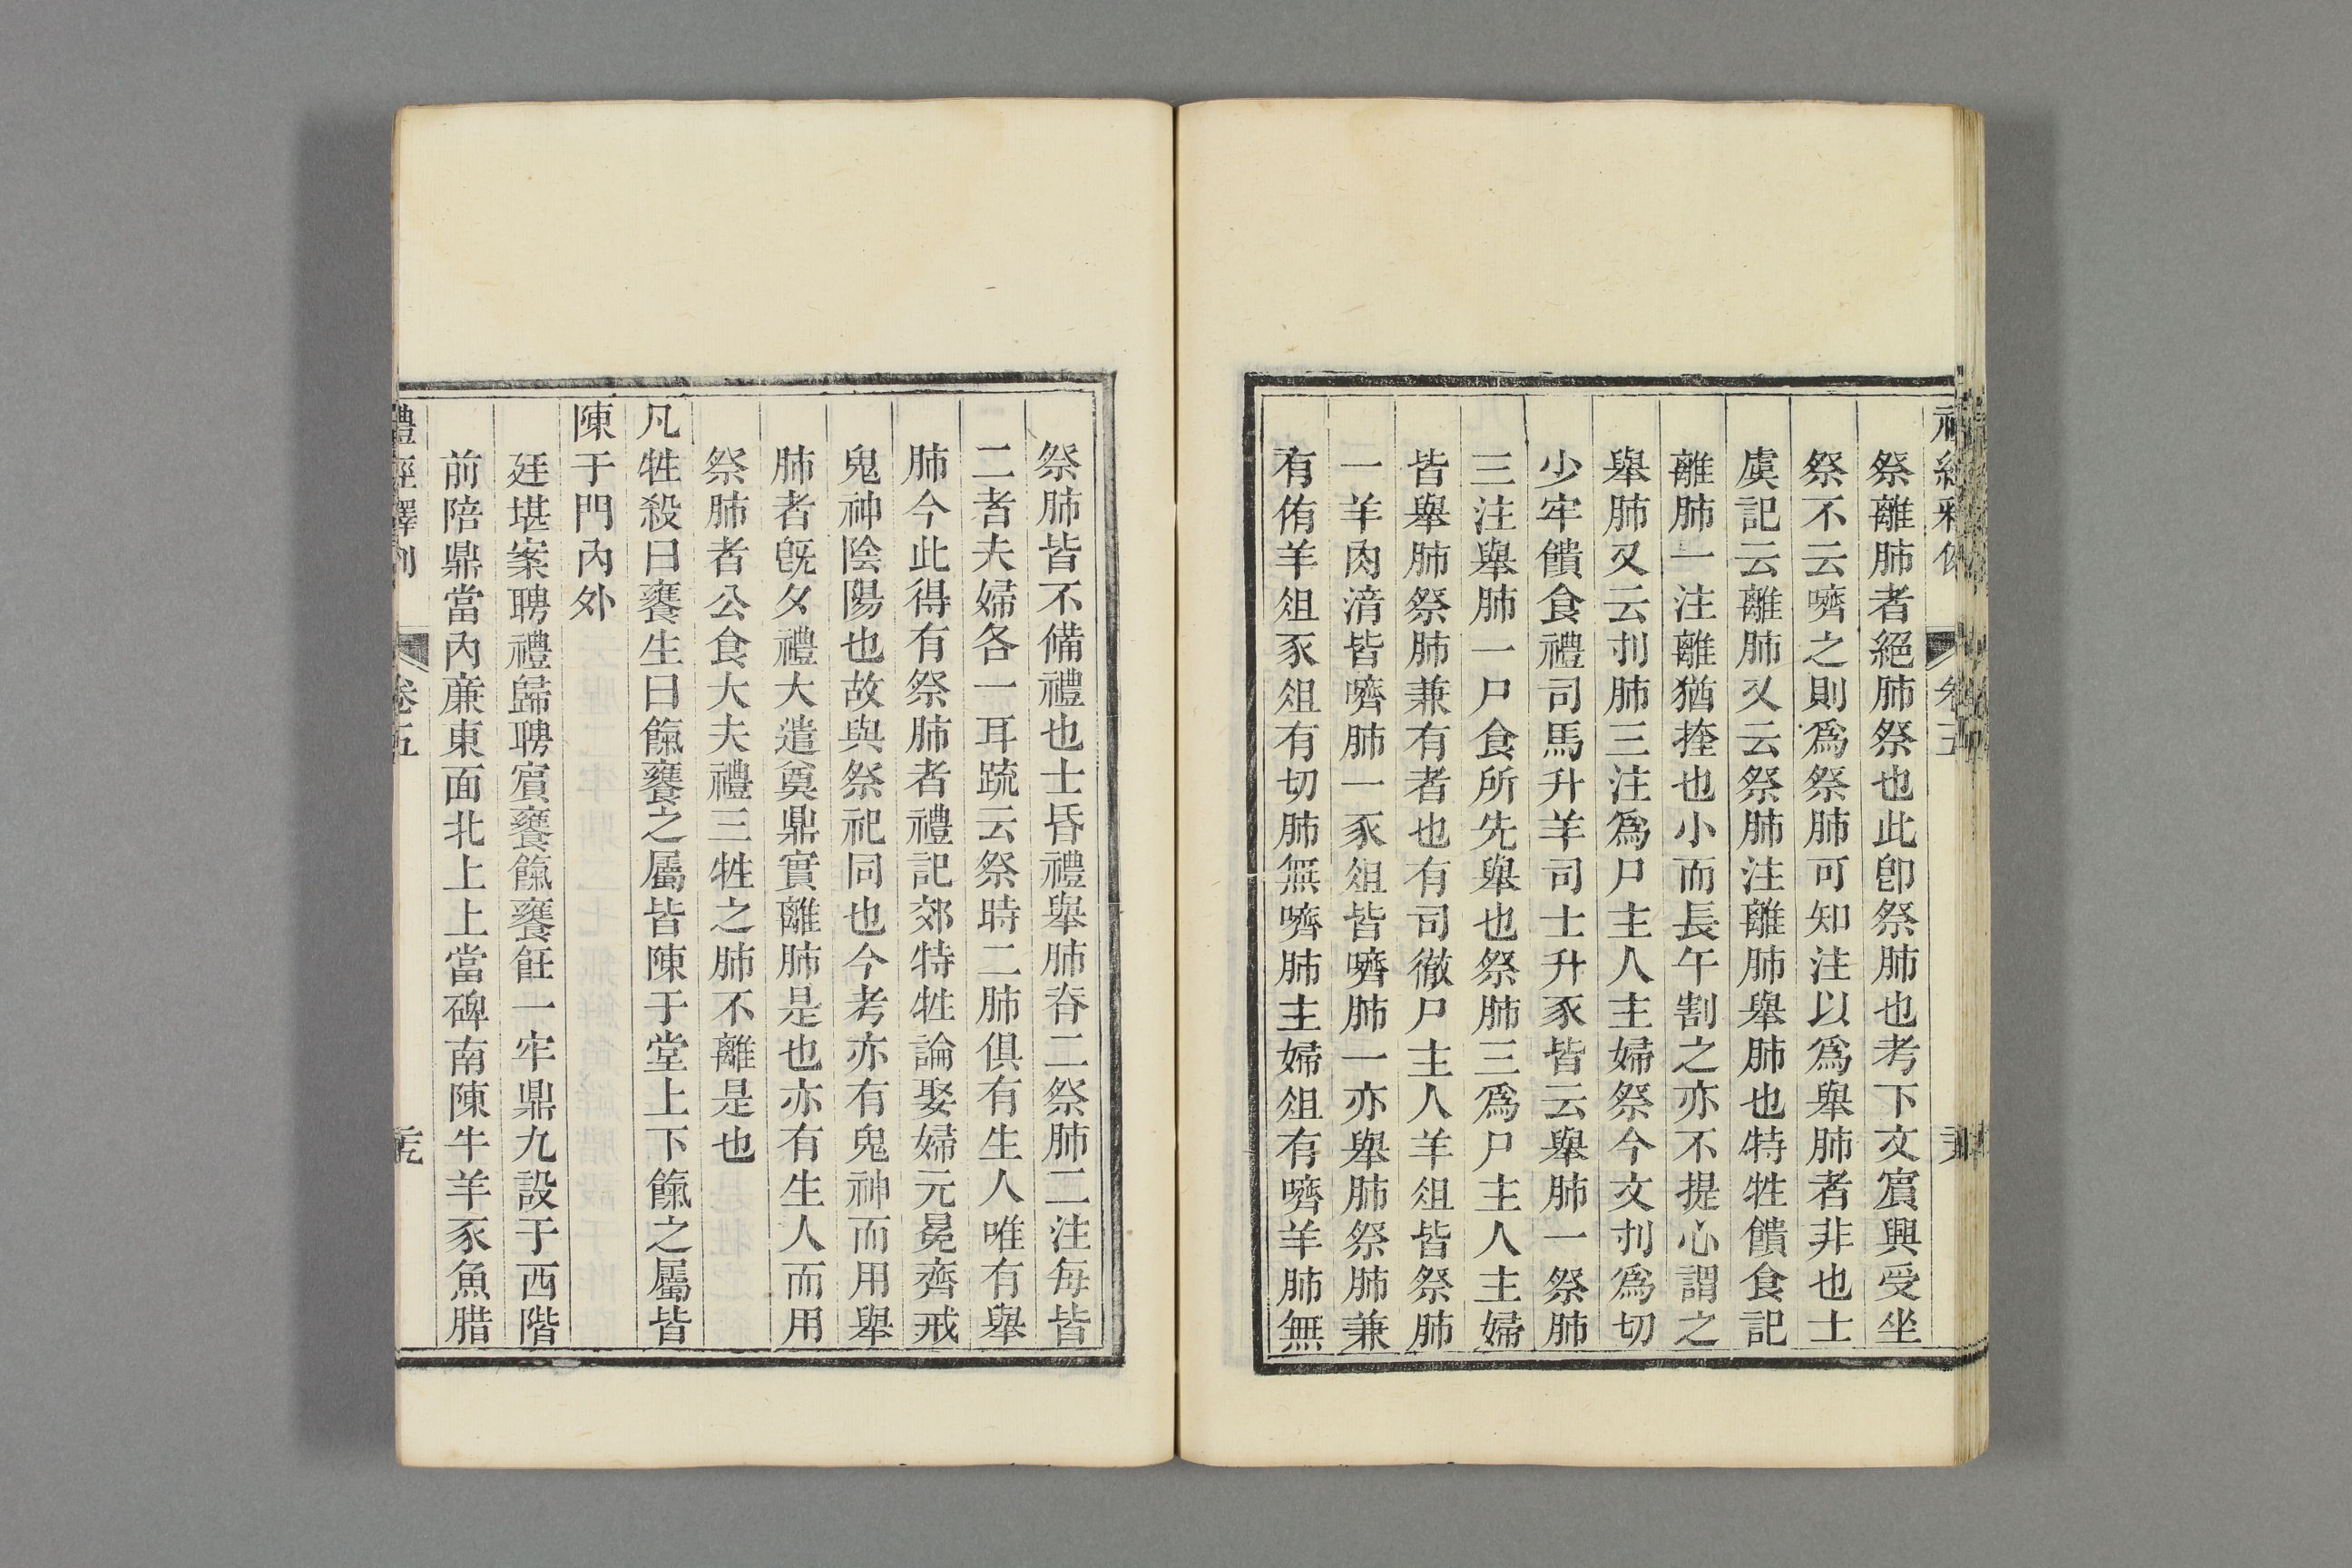 祭離肺者絕肺祭也此卽祭肺也考下文賔興受坐
祭不云嚌之則爲祭肺可知注以爲舉肺者非也士
虞記云離肺又云祭肺注離肺舉肺也特牲饋食記
離肺一注離猶㧜也小而長午割之亦不提心謂之
舉肺又云刌肺三注爲尸主人主婦祭今文刌爲切
少牢饋食禮司馬升羊司士升豕皆云舉肺一祭肺
三注舉肺一尸食所先舉也祭肺三爲尸主人主婦
皆舉肺祭肺兼有者也有司徹尸主人羊俎皆祭肺
一羊肉湆皆嚌肺一豕俎皆嚌肺一亦舉肺祭肺兼
有侑羊俎豕俎有切肺無嚌肺主婦俎有嚌羊肺無
祭肺皆不備禮也士昏禮舉肺脊二祭肺二注每皆
二者夫婦各一耳疏云祭時二肺俱有生人唯有舉
肺今此得有祭肺者禮記郊特牲論娶婦元冕齊戒
鬼神陰陽也故與祭祀同也今考亦有鬼神而用舉
肺者旣夕禮大遣奠鼎實離肺是也亦有生人而用
祭肺者公食大夫禮三牲之肺不離是也
凡牲殺曰饔生曰餼饔之屬皆陳于堂上下餼之屬皆
陳于門內外
廷堪案聘禮歸聘賔饔餼饔飪一牢鼎九設于西階
前陪鼎當內廉東面北上上當碑南陳牛羊豕魚腊
禮經釋例
卷五